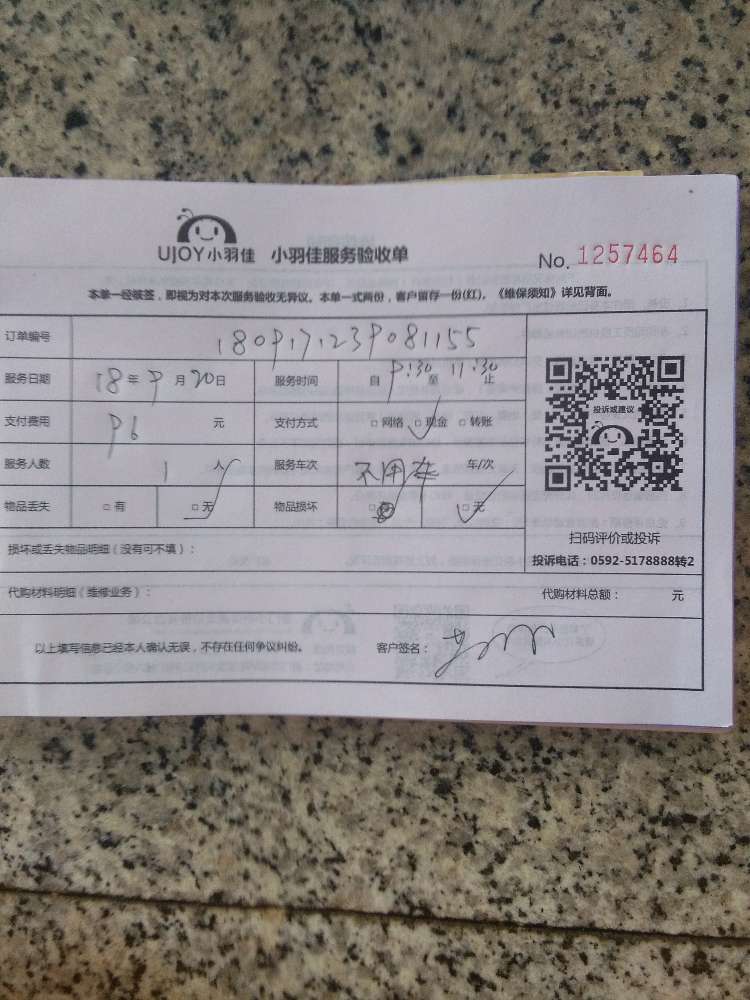 UJOY小羽佳 小羽佳服务验收单 No. 1257464
本单一经核签，即视为对本次服务验收无异议。本单一式两份，客户留存一份(红)。《维保须知》详见背面。
订单编号 1809171239081155
服务日期 18年9月20日 服务时间 自9:30至11:30止
支付费用 96 元 支付方式 □网络 □现金 □转账
投诉或建议
服务人数 1 人 服务车次 不用车 车/次
物品丢失 □有 □无 物品损坏 □ □无
扫码评价或投诉
损坏或丢失物品明细（没有可不填）：
投诉电话：0592-5178888转2
代购材料明细（维修业务）： 代购材料总额： 元
以上填写信息已经本人确认无误，不存在任何争议纠纷。 客户签名：